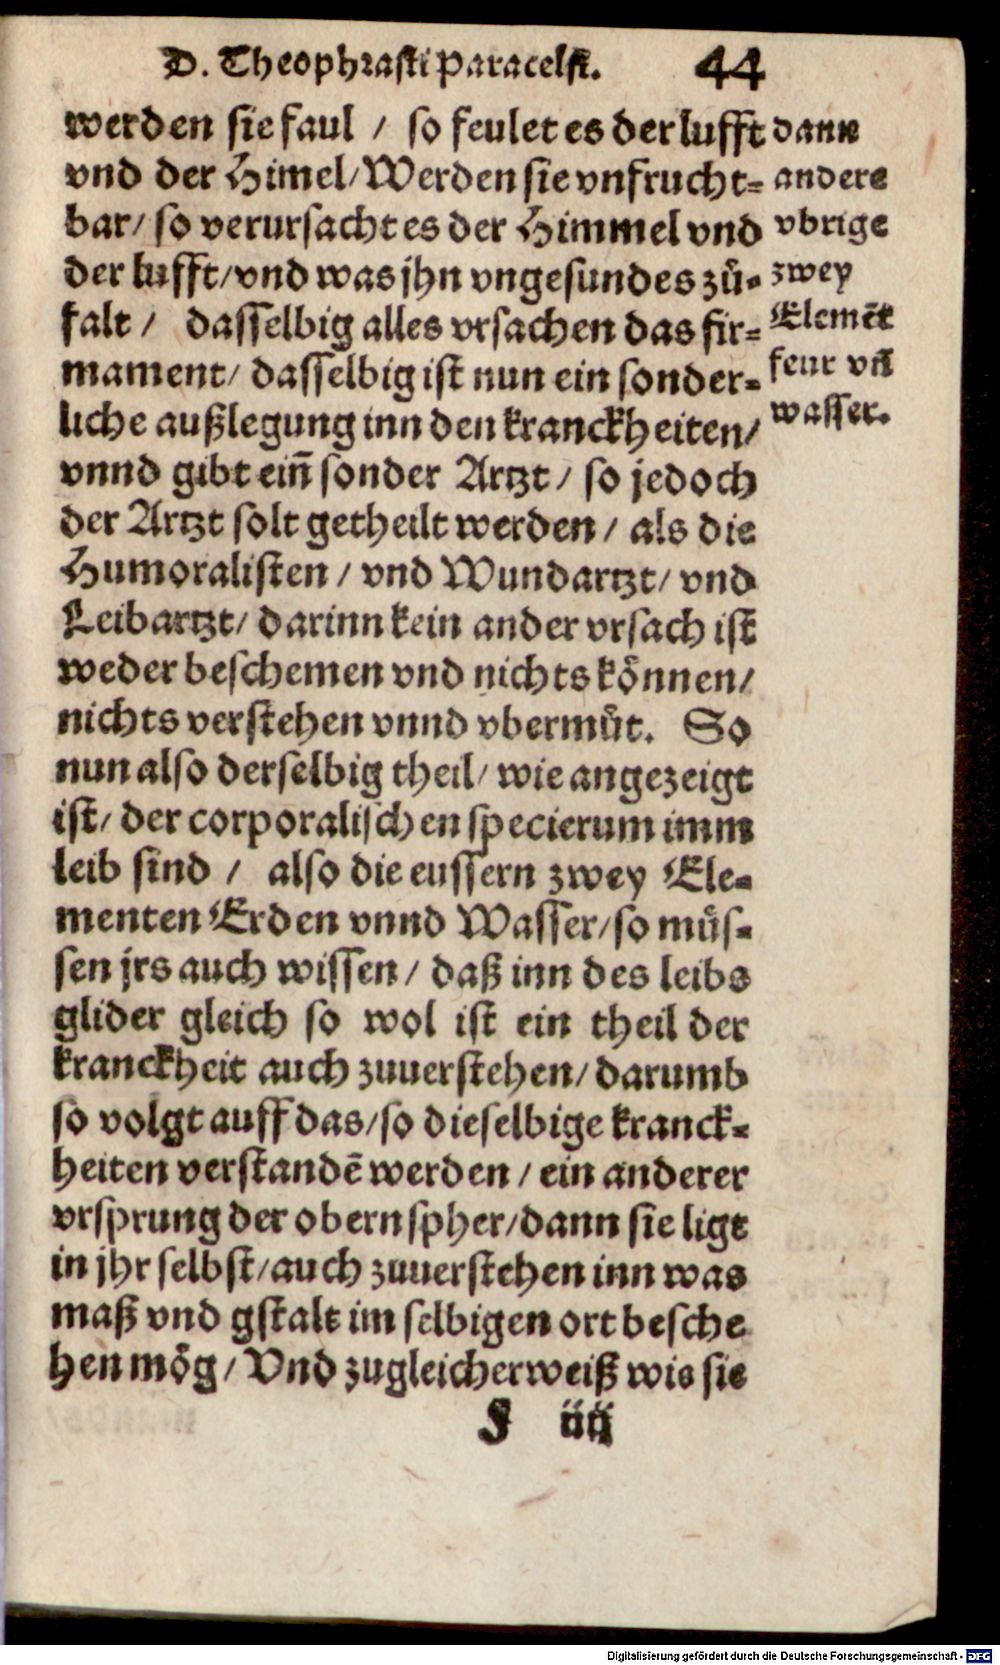 D. Theophrasti Paracelsi. 44
werden sie faul / so feulet es der lufft
vnd der Himel/ Werden sie vnfrucht-
bar/ so verursacht es der Himmel vnd
der lufft/ vnd was jhn vngesundes zů-
falt / dasselbig alles vrsachen das fir-
mament/ dasselbig ist nun ein sonder-
liche außlegung inn den kranckheiten/
vnnd gibt ein̄ sonder Artzt / so jedoch
der Artzt solt getheilt werden / als die
Humoralisten / vnd Wundartzt/ vnd
Leibartzt/ darinn kein ander vrsach ist
weder beschemen vnd nichts können/
nichts verstehen vnnd vbermůt. So
nun also derselbig theil/ wie angezeigt
ist/ der corporalischen specierum imm
leib sind / also die eussern zwey Ele-
menten Erden vnnd Wasser/ so müs-
sen jrs auch wissen / daß inn des leibs
glider gleich so wol ist ein theil der
kranckheit auch zuuerstehen/ darumb
so volgt auff das/ so dieselbige kranck-
heiten verstandē werden / ein anderer
vrsprung der obern spher/ dann sie ligt
in jhr selbst/ auch zuuerstehen inn was
maß vnd gstalt im selbigen ort besche
hen mög / Vnd zugleicherweiß wie sie
J iiij
dann
andere
vbrige
zwey
Elemēt
feur vñ
wasser.
Digitalisierung gefördert durch die Deutsche Forschungsgemeinschaft - DFG